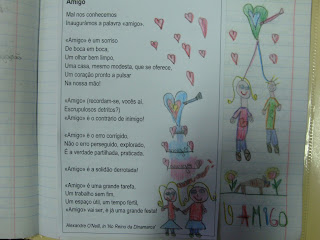 Amigo
Mal nos conhecemos
Inaugurámos a palavra «amigo».
«Amigo» é um sorriso
De boca em boca,
Um olhar bem limpo,
Uma casa, mesmo modesta, que se oferece,
Um coração pronto a pulsar
Na nossa mão!
«Amigo» (recordam-se, vocês aí,
Escrupulosos detritos?)
«Amigo» é o contrário de inimigo!
«Amigo» é o erro corrigido,
Não o erro perseguido, explorado,
É a verdade partilhada, praticada.
«Amigo» é a solidão derrotada!
«Amigo» é uma grande tarefa,
Um trabalho sem fim,
Um espaço útil, um tempo fértil,
«Amigo» vai ser, é já uma grande festa!
Alexandre O'Neill, in 'No Reino da Dinamarca'
AMIGO